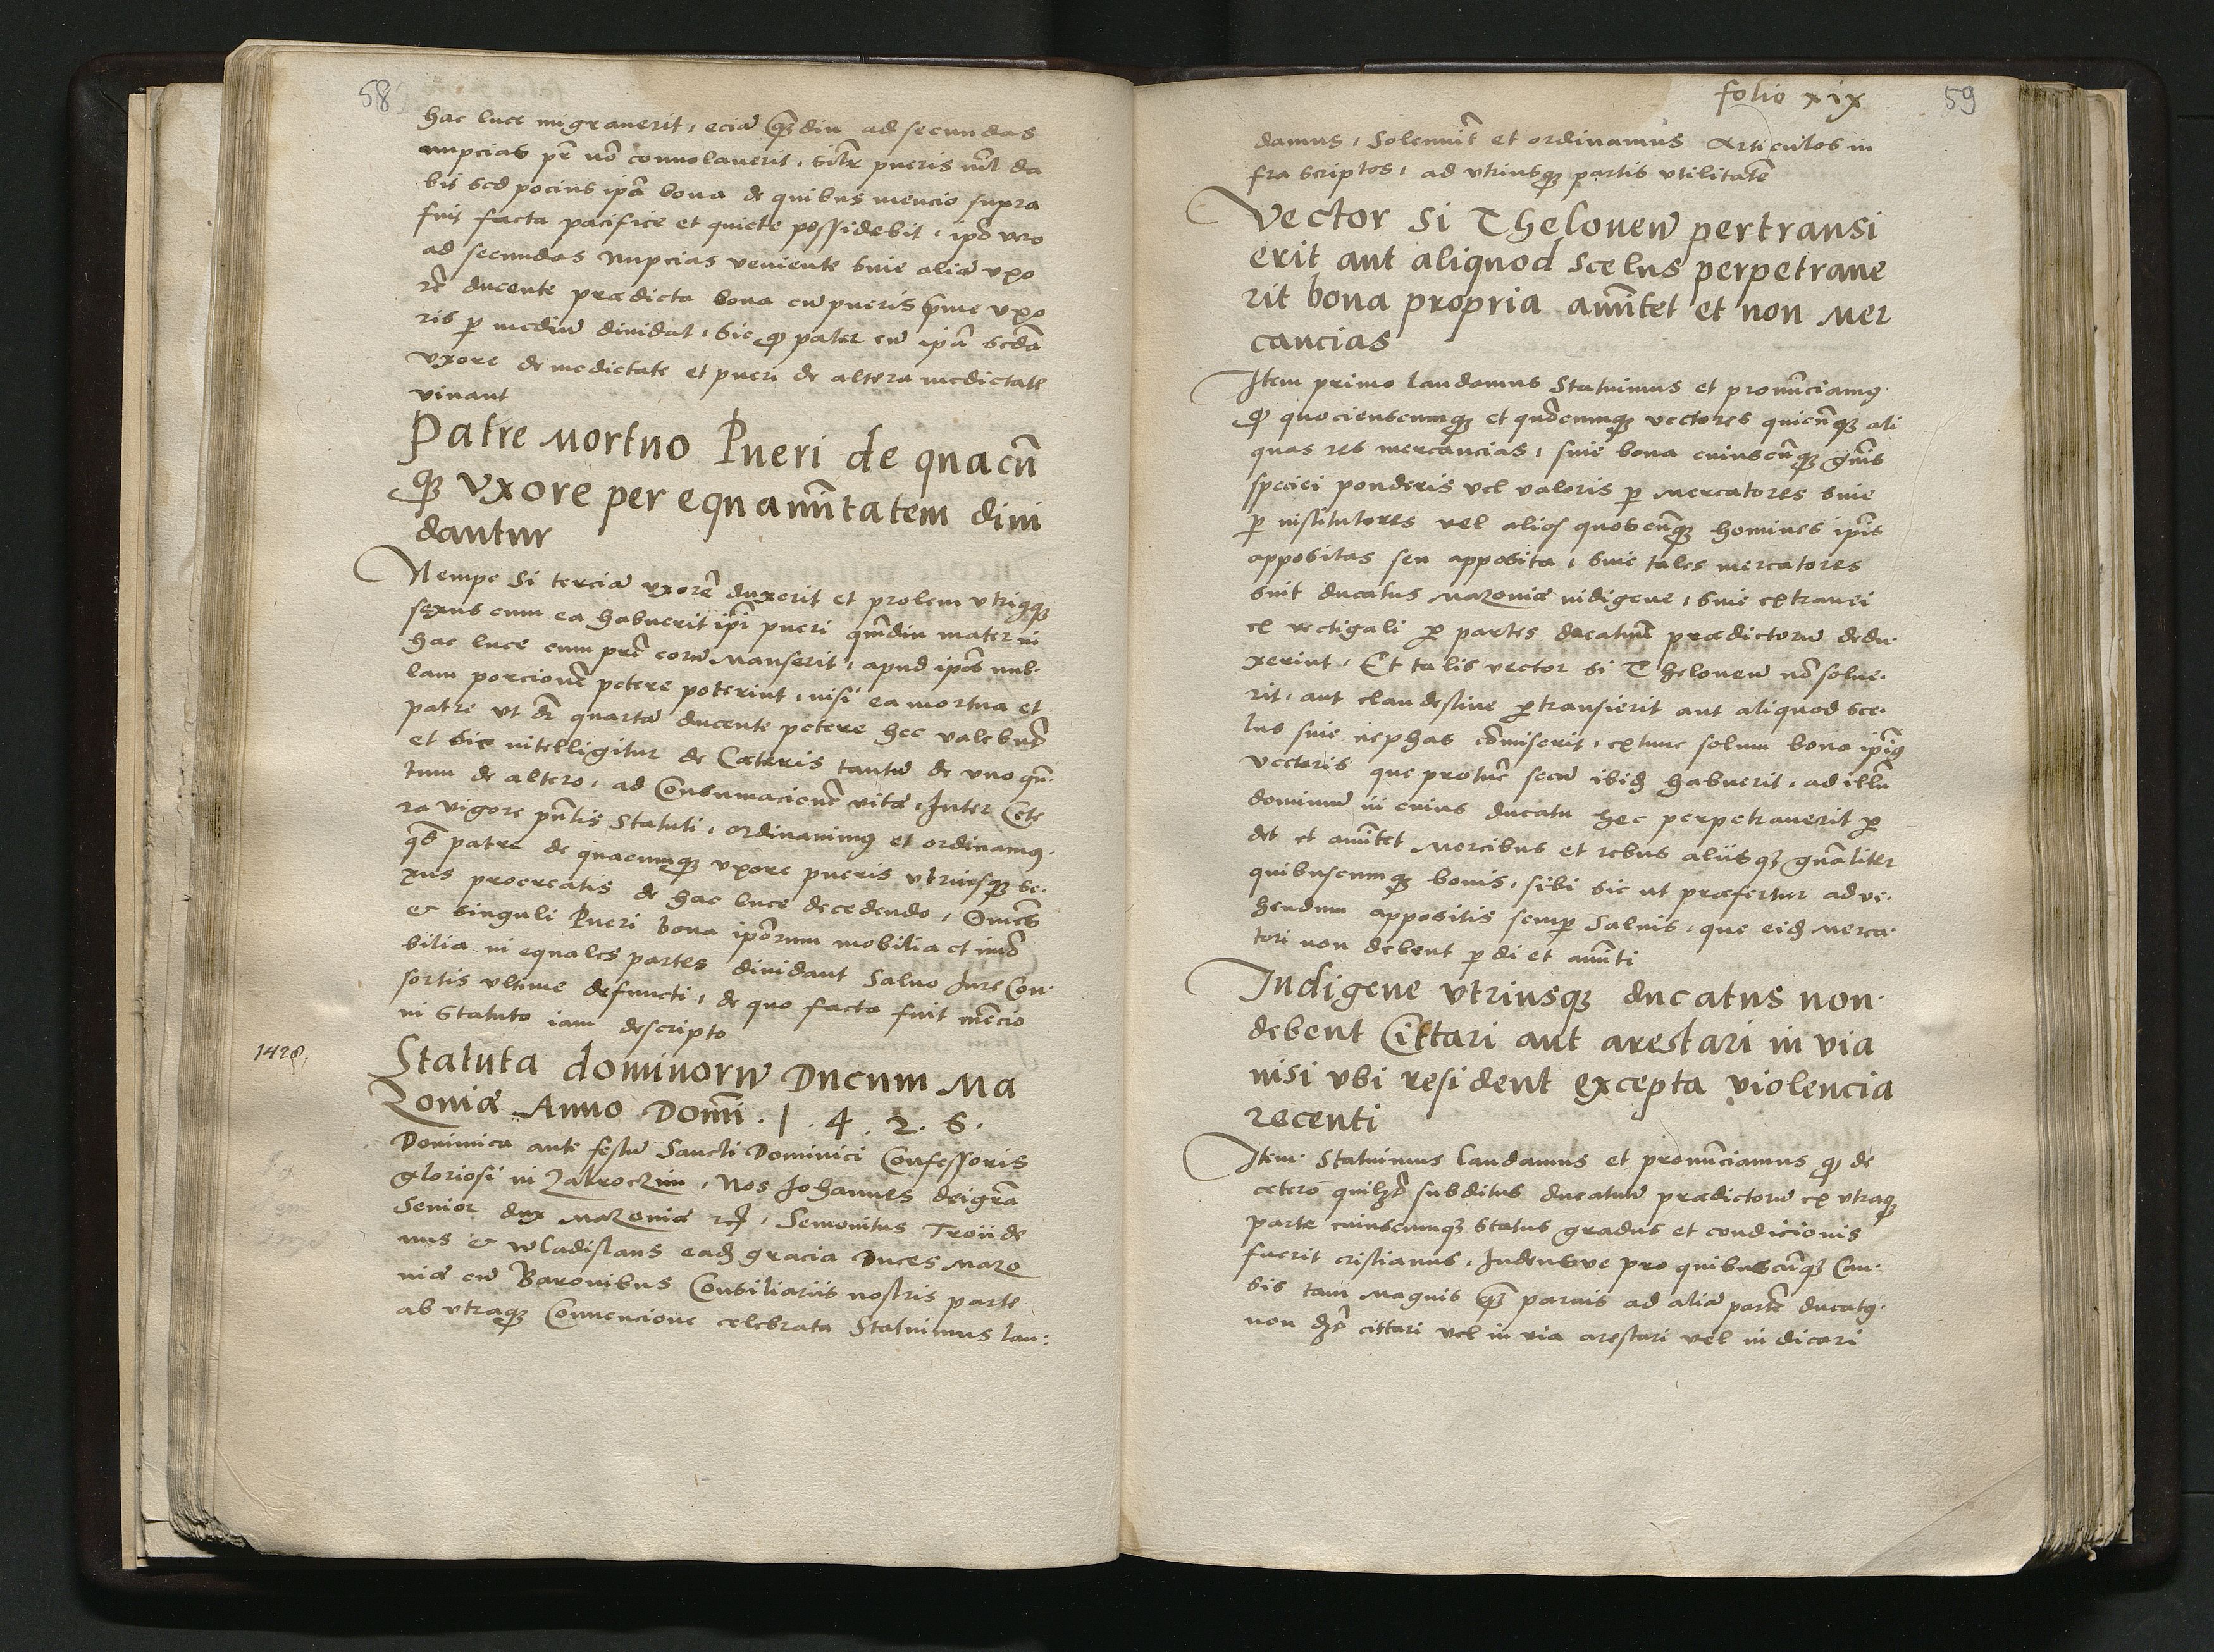 58
hac luce migrauerit, eciā q̄ȝdiu ad secundas
nupcias pr̄ nō conuolauerit, siłr pueris nīl da
bit sed pocius ipā bona de quibus mencio supra
fuit facta pacifice et quiete possidebit, ipō vero
ad secundas nupcias veniente siue aliā vxo
rē ducente prædicta bona cū pueris prīme vxo
ris ꝑ mediū diuidat, sic ꝙ pater cū ipā scdā
vxore de medietate et pueri de altera medietate
viuant
Patre Mortuo Pueri de quacū
qȝ Vxore per equanimitatem diui
dantur
Nempe si terciā vxorē duxerit et prolem vtriqqȝ
sexus cum ea habuerit ipī pueri qm̄diu mater in
hac luce cum prē eorū Manserit, apud ipōs nul-
lam porcionē petere poterint, nisi ea mortua et
patre vt dr̄ quartā ducente petere hec valebūt
et sic intelligitur de Cæteris tantū de vno qn̄-
tum de altero, ad Consumacionē vitæ, Inter Cete
ra vigore pn̄tis Statuti, ordinauimꝰ et ordinamꝰ.
qd̄ patre de quacumqȝ vxore pueris vtriusqȝ se-
xus procreatis de hac luce decedendo, Omēs
& singuli Pueri bona ipōrum mobilia et imō
bilia in equales partes diuidant Saluo Jure Con-
sortis vltime defuncti, de quo facta fuit mēcio
in Statuto iam descripto
1428,
Statuta dominorū Ducum Ma
Zoniæ Anno Domī . 1 . 4 . 2 . 6 .
Dominica ante festū Sancti Dominici Confessoris
gloriosi in Zakroczim, Nos Johannes deigrā
Senior dux Mazoniæ rcꝭ, Semouitus Troiide
nus & Wladislaus eadȝ gracia Duces Mazo
niæ cū Baronibus Consiliariis nostris parte
ab vtraqȝ Conuencione celebrata Statuimus lau:
folio xix
59
damus, Solemnīt et ordinamus Articulos in
fra scriptos, ad vtriusqȝ partis vtilitatē
Vector Si Theloneū pertransi
erit aut aliquod Scelus perpetraue
rit bona propria amīttet et non Mer
cancias
Item primo laudamus Statuimus et pronūciamꝰ
ꝙ quocienscumqȝ et qn̄cumqȝ vectores quicūqȝ ali
quas res mercancias, siue bona cuiuscūqȝ gnīs
speciei ponderis vel valoris ꝑ Mercatores siue
ꝑ institutores vel alios quoscūqȝ homines ipīs
appositas seu apposita, siue tales mercatores
sint ducatus Mazoniæ indigene, siue extranei
et vectigali ꝑ partes ducatuū prædictorū dedu-
xerint, Et talis vector si Theloneū nō solue-
rit, aut clandestine ꝑtransierit aut aliquod sce-
lus siue nephas cōmiserit, extunc solum bona ipīꝰ
vectoris que protūc secū ibidȝ habuerit, ad illū
dominū in cuius ducatu hec perpetrauerit ꝑ
det et amīttet Mercibus et rebus aliisqȝ gnāliter
quibuscumqȝ bonis, sibi sic vt præfertur adve-
hendum appositis semꝑ Saluis, que eidȝ Merca-
tori non debent ꝑdi et amītti
Indigene vtriusqȝ ducatus non
debent Cittari aut arestari in via
nisi vbi resident excepta violencia
recenti
Item Statuimus laudamus et pronūciamus ꝙ de
cetero quilȝt subditus ducatuū prædictorū ex vtraqȝ
parte cuiuscumqȝ status gradus et condicionis
fuerit cristianus, Iudeusve pro quibuscūqȝ Cau-
sis tam Magnis q̄ȝ paruis ad aliā partē ducatꝰ
non dȝt cittari vel in via arestari vel iudicari